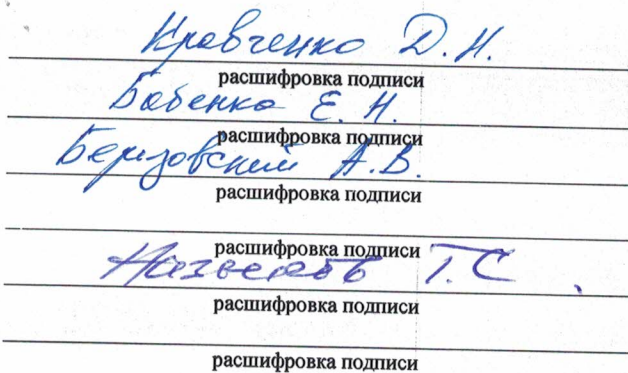 Кравченко Д.Н.
расшифровка подписи
Бабенко Е.Н.
расшифровка подписи
Березовский А.В.
расшифровка подписи
расшифровка подписи
Т.С
расшифровка подписи
расшифровка подписи